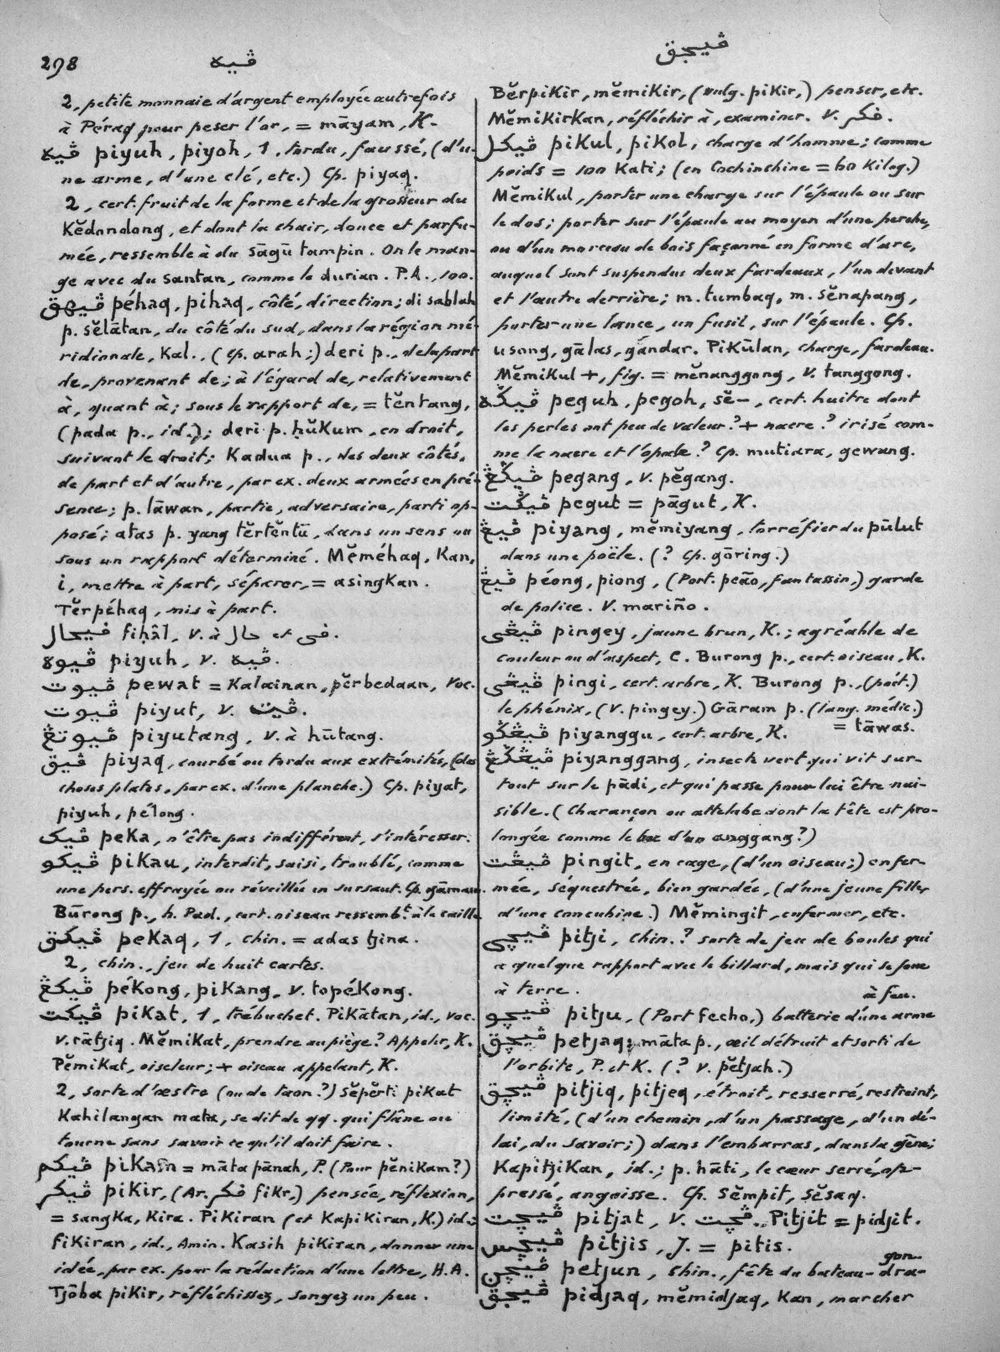 298 ڤيه ڤيجق
2, petite monnaie d'argent employée autrefois
à Péraq pour peser l'or, = māyam, K.
ڤيه piyuh, piyoh, 1, tordu, faussé, (d'u-
ne arme, d'une clé, etc.) Cp. piyaq.
2, cert. fruit de la forme et de la grosseur du
Kĕdondong, et dont la chair, douce et parfu-
mée, ressemble à du sāgū tampin. On le man-
ge avec du santan, comme le durian. P.A., 100.
ڤيهق péhaq, pihaq, côté, direction; di sablah
p. sĕlātan, du côté du sud, dans la région mé-
ridionale, Kal., (Cp. arah;) deri p., de la part
de, provenant de; à l'égard de, relativement
à, quant à; sous le rapport de, = tĕntang,
(pada p., id.); deri p. ḥŭkum, en droit,
suivant le droit; Kadua p., des deux côtés,
de part et d'autre, par ex. deux armées en pré-
sence; p. lāwan, partie, adversaire, parti op-
posé; atas p. yang tĕrtĕntū, dans un sens ou
sous un rapport déterminé. Mĕméhaq, Kan,
i, mettre à part, séparer, = asingKan.
Tĕrpéhaq, mis à part.
فيحال fiḥâl, v. à حال et فى.
ڤيوه piyuh, v. ڤيه.
ڤيوت pewat = Kalainan, pĕrbedaan, Voc.
ڤيوت piyut, v. ڤيت.
ڤيوتڠ piyutang, v. à hūtang.
ڤيق piyaq, courbé ou tordu aux extrémités, (de
choses plates, par ex. d'une planche.) Cp. piyat,
piyuh, pélong.
ڤيک peKa, n'être pas indifférent, s'intéresser.
ڤيكو piKau, interdit, saisi, troublé, comme
une pers. effrayée ou réveillée en sursaut. Cp. gāmam.
Būrong p., h. Pad., cert. oiseau ressembt. à la caille
ڤيكق peKaq, 1, chin. = adas tjina.
2, chin., jeu de huit cartes.
ڤيكڠ péKong, piKang, v. topéKong.
ڤيكت piKat, 1, trébuchet. PiKātan, id., voc.
v. rātjiq. MĕmiKat, prendre au piège? Appeler, K.
PĕmiKat, oiseleur; + oiseau appelant, K.
2, sorte d'œstre (ou de taon?) Sĕpĕrti piKat
Kahilangan mata, se dit de qq. qui flâne ou
tourne sans savoir ce qu'il doit faire.
ڤيكم piKam = māta pānah, P. (Pour pĕniKam?)
ڤيكر piKir, (Ar. فكر fiKr,) pensée, réflexion,
= sangKa, Kira. PiKiran (et KapiKiran, K.) id.;
FiKiran, id., Amin. Kasih piKiran, donner une
idée, par ex. pour la rédaction d'une lettre, H.A.
Tjōba piKir, réfléchissez, songez un peu.
BĕrpiKir, mĕmiKir, (vulg. piKir,) penser, etc.
MĕmiKirKan, réfléchir à, examiner. V. فكر.
ڤيكل piKul, piKol, charge d'homme; comme
poids = 100 Kati; (en Cochinchine = 60 Kilog.)
MĕmiKul, porter une charge sur l'épaule ou sur
le dos; porter sur l'épaule au moyen d'une perche,
ou d'un morceau de bois façonné en forme d'arc,
auquel sont suspendus deux fardeaux, l'un devant
et l'autre derrière; m. tumbaq, m. sĕnapang,
porter une lance, un fusil, sur l'épaule. Cp.
usong, gālas, gāndar. PiKūlan, charge, fardeau.
MĕmiKul +, fig. = mĕnanggong, v. tanggong.
ڤيڬه peguh, pegoh, sĕ–, cert. huître dont
les perles ont peu de valeur? + nacre? irisé com-
me la nacre et l'opale? Cp. mutiara, gewang.
ڤيڬڠ pegang, v. pĕgang.
ڤيڬت pegut = pāgut, K.
ڤيڠ piyang, mĕmiyang, torréfier du pūlut
dans une poêle. (? Cp. gōring.)
ڤيڠ péong, piong, (Port. peão, fantassin,) garde
de police. V. mariño.
ڤيڠى pingey, jaune brun, K.; agréable de
couleur ou d'aspect, C. Burong p., cert. oiseau, K.
ڤيڠى pingi, cert. arbre, K. Burong p., (poét.)
le phénix, (v. pingey.) Gāram p. (lang. médic.)
= tāwas.
ڤيڠڬو piyanggu, cert. arbre, K.
ڤيڠڬڠ piyanggang, insecte vert qui vit sur-
tout sur le pādi, et qui passe pour lui être nui-
sible. (Charançon ou attelabe dont la tête est pro-
longée comme le bec d'un anggang?)
ڤيڠت pingit, en cage, (d'un oiseau;) enfer-
mée, séquestrée, bien gardée, (d'une jeune fille,
d'une concubine.) Mĕmingit, enfermer, etc.
ڤيچى pitji, chin.? sorte de jeu de boules qui
a quelque rapport avec le billard, mais qui se joue
à terre.
à feu.
ڤيچو pitju, (Port fecho,) batterie d'une arme
ڤيچق petjaq; māta p., œil détruit et sorti de
l'orbite, P. et K. (? v. pĕtjah.)
ڤيچق pitjiq, pitjeq, étroit, resserré, restreint,
limité, (d'un chemin, d'un passage, d'un dé-
lai, du savoir;) dans l'embarras, dans la gêne;
KapitjiKan, id.; p. hāti, le cœur serré, op-
pressé, angoisse. Cp. sĕmpit, sĕsaq.
ڤيچت pitjat, v. ڤچت. Pitjit = pidjit.
ڤيچس pitjis, J. = pitis.
gon.
ڤيچن petjun, chin., fête du bateau-dra-
ڤيجق pidjaq, mĕmidjaq, Kan, marcher